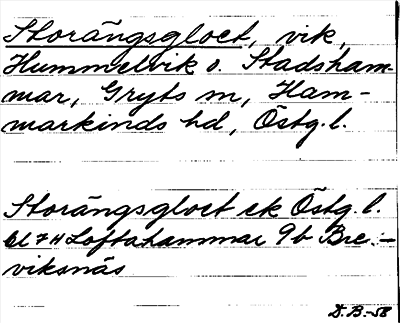 Storängsgloet, vik,
Hummelvik o. Stadsham-
mar, Gryts sn, Ham-
markinds hd, Östg. l.
Storängsgloet ek Östg. l.
bl 7H Loftahammar 9b Bre-
viksnäs
D. B.-58